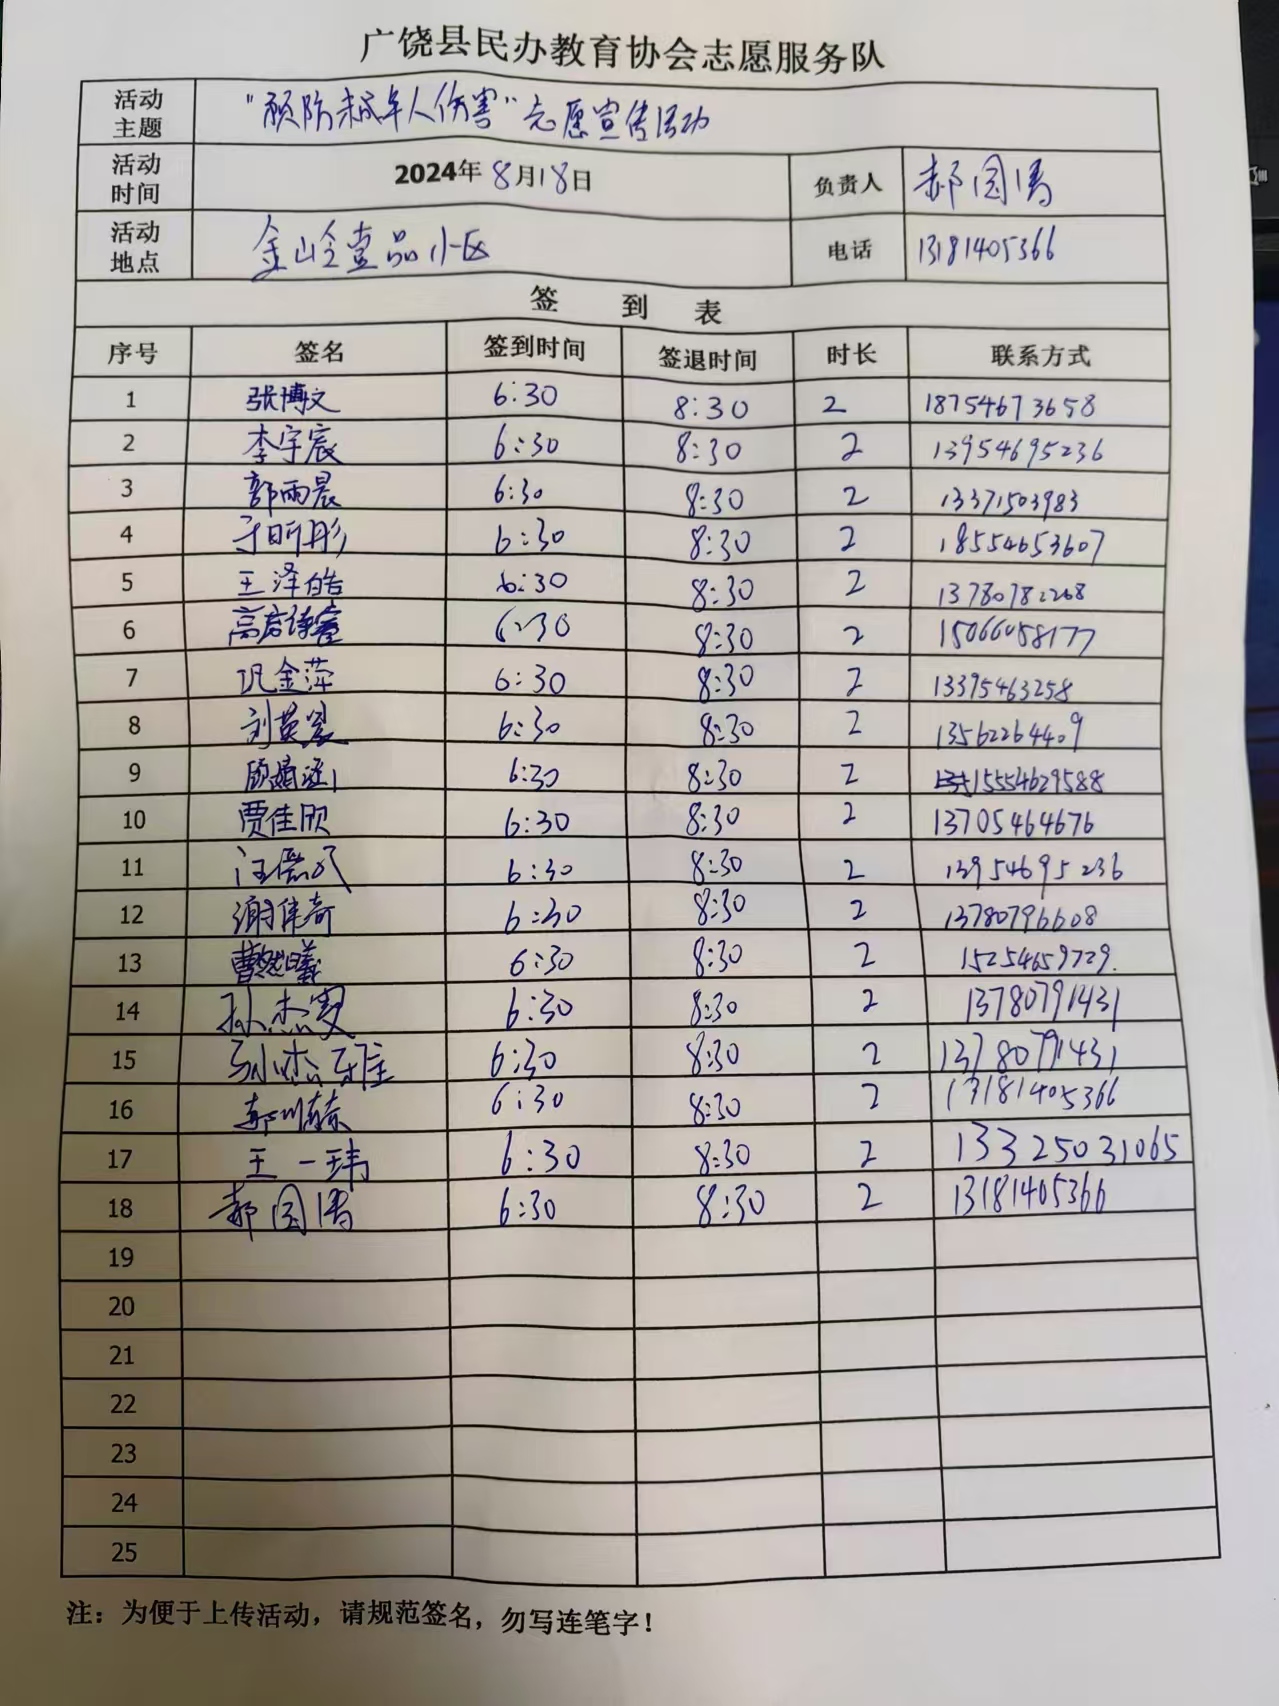 广饶县民办教育协会志愿服务队
活动主题 "预防未成年人伤害"志愿宣传活动
活动时间 2024年8月18日 负责人 郝国清
活动地点 金岭壹品小区 电话 13181405366
签 到 表
序号 签名 签到时间 签退时间 时长 联系方式
1 张博文 6:30 8:30 2 18754673658
2 李宇宸 6:30 8:30 2 13954695236
3 郭雨晨 6:30 8:30 2 13371503983
4 于昕彤 6:30 8:30 2 18554653607
5 王泽皓 6:30 8:30 2 13780782268
6 6:30 8:30 2 15066058177
7 巩金萍 6:30 8:30 2 13395463258
8 6:30 8:30 2 13562264409
9 6:30 8:30 2 15554629588
10 贾佳欣 6:30 8:30 2 13705464676
11 6:30 8:30 2 13954695236
12 谢伟奇 6:30 8:30 2 13780796608
13 6:30 8:30 2 15254659729.
14 孙杰雯 6:30 8:30 2 13780791431
15 孙杰雅 6:30 8:30 2 13780791431
16 6:30 8:30 2 13181405366
17 王一玮 6:30 8:30 2 13325031065
18 郝国清 6:30 8:30 2 13181405366
19
20
21
22
23
24
25
注：为便于上传活动，请规范签名，勿写连笔字！